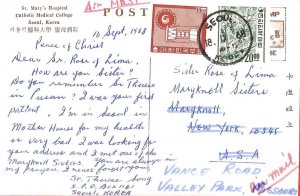 St. Mary's Hospital
Catholic Medical College
Seoul, Korea
가톨릭醫科大學 聖母病院
Air Mail
POST
16 Sept, 1968
Peace of Christ
Dear Sr. Rose of Lima,
How are you Sister?
Do you remember Sr Therese
in Pusan? I was your first
patient. I'm in dear in
Mother House for my health
is very bad. I was looking for
you address and I met one of the
Maryknoll Sisters. You are always in
my prayer. I never forget you.
Sr. Therese
S.P.O. Box
Seoul, KOREA
SEOUL
대한민국
20.00
Sister Rose of Lima
Maryknoll Sisters
Maryknoll
New York, 10545
U.S.A
VANCE ROAD
VALLEY PARK, MISSOURI
Air mail